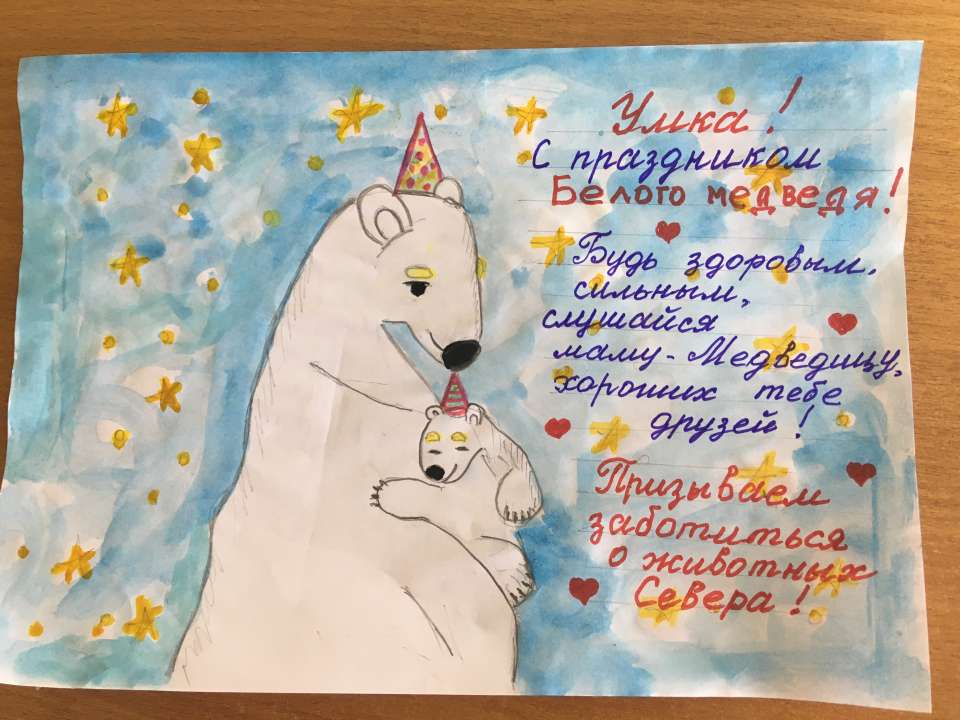 Умка!
С праздником
Белого медведя!
Будь здоровым,
сильным,
слушайся
маму-Медведицу,
хороших тебе
друзей!
Призываем
заботиться
о животных
Севера!